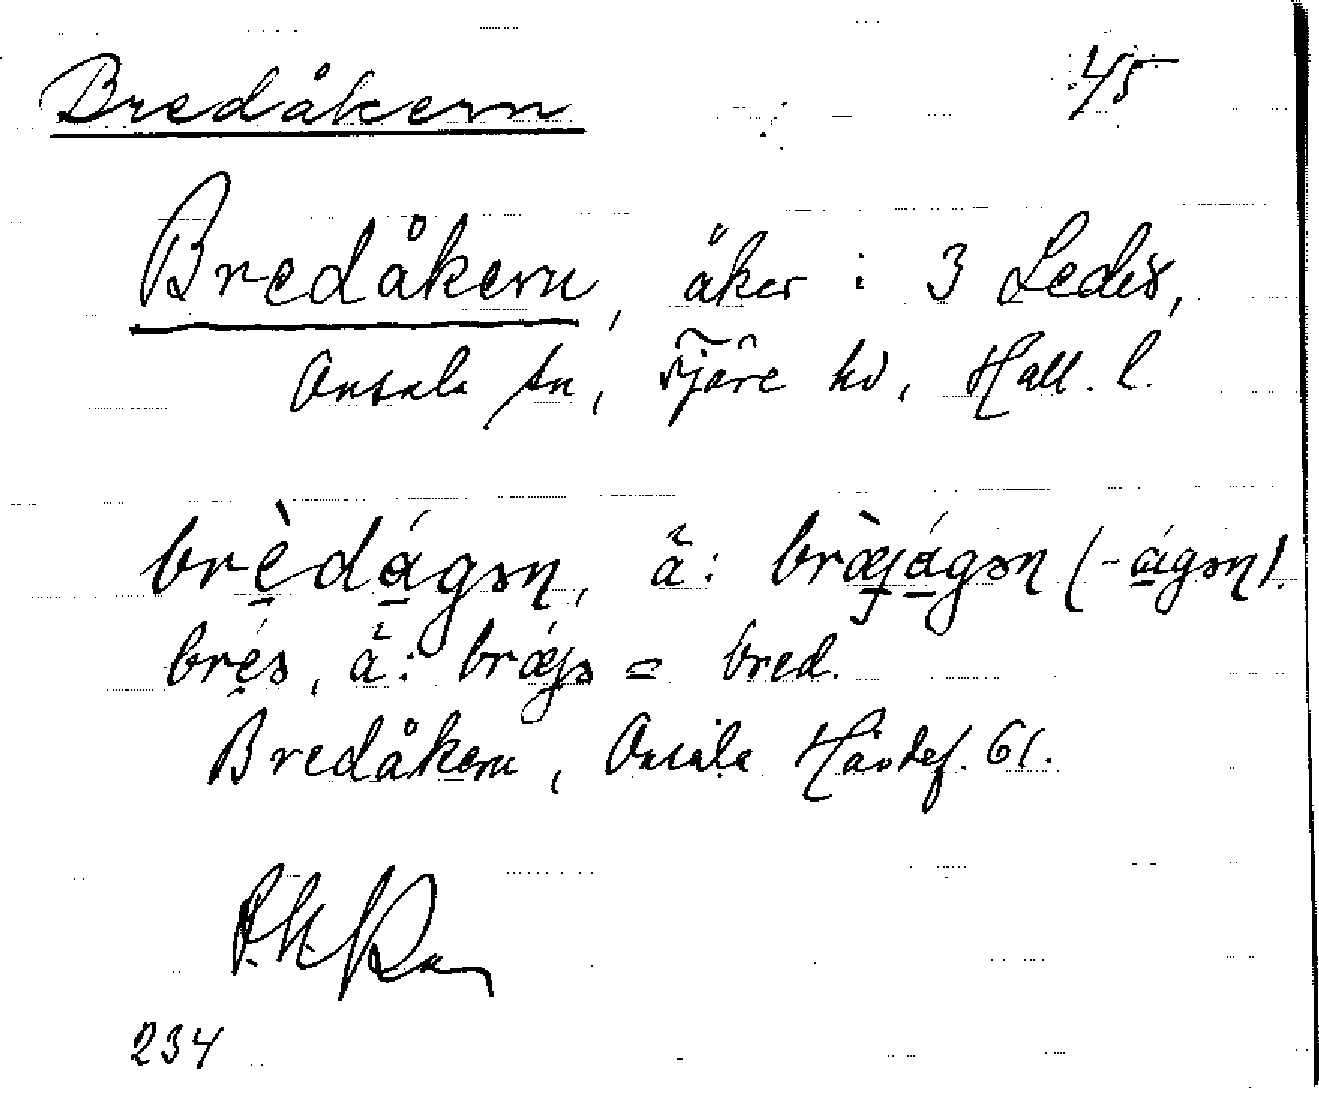 Bredåkern 45
Bredåkern, åker i 3 Ledis,
Onsala sn, Fjäre hd, Hall. l.
brèdágən, ä: bræ̀jágən (-ágən).
brés, ä: brǽjs = bred.
Bredåkern, Onsala Hävdef. 61.
234